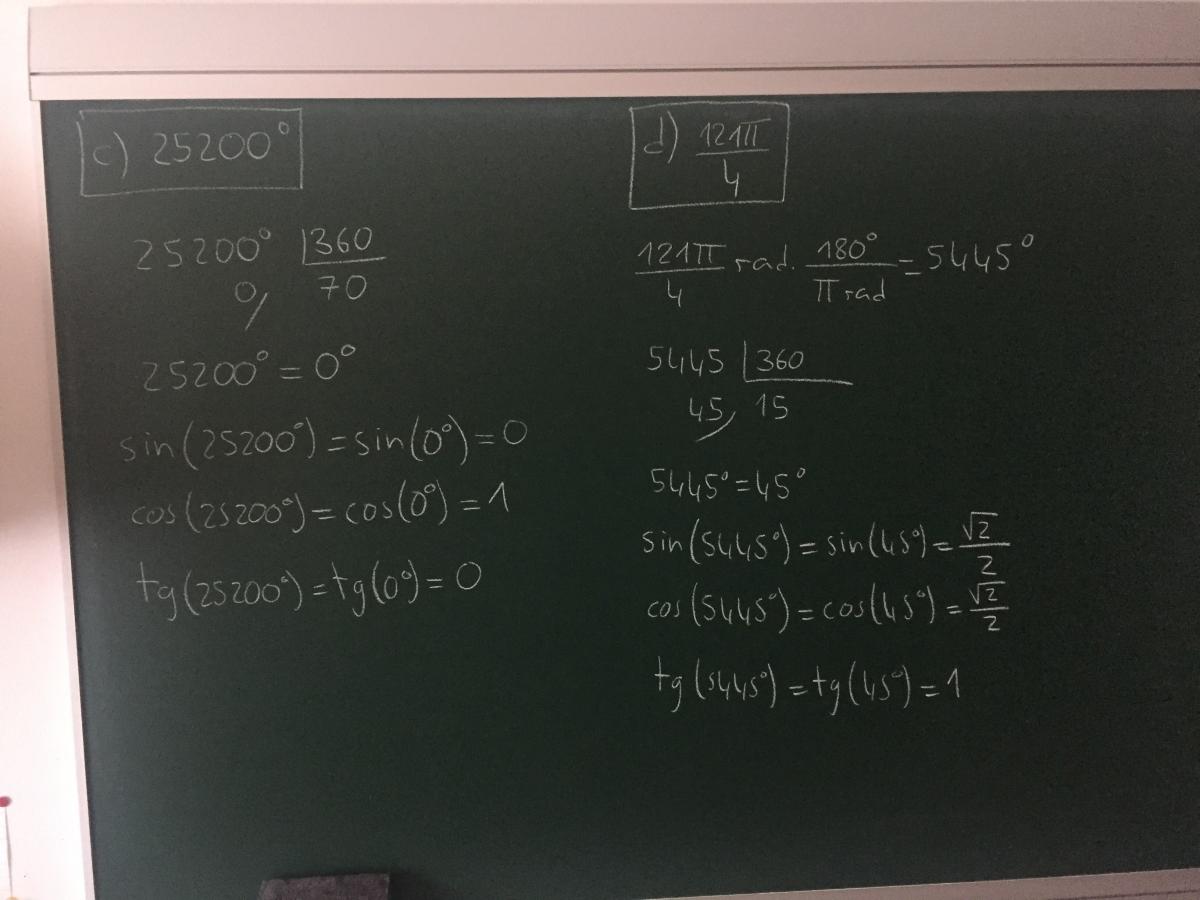 c) 25200°
25200° |360
0/ 70
25200° = 0°
sin(25200°) = sin(0°) = 0
cos(25200°) = cos(0°) = 1
tg(25200°) = tg(0°) = 0
d) 121π/4
121π/4 rad · 180°/π rad = 5445°
5445 |360
45/ 15
5445° = 45°
sin(5445°) = sin(45°) = √2/2
cos(5445°) = cos(45°) = √2/2
tg(5445°) = tg(45°) = 1